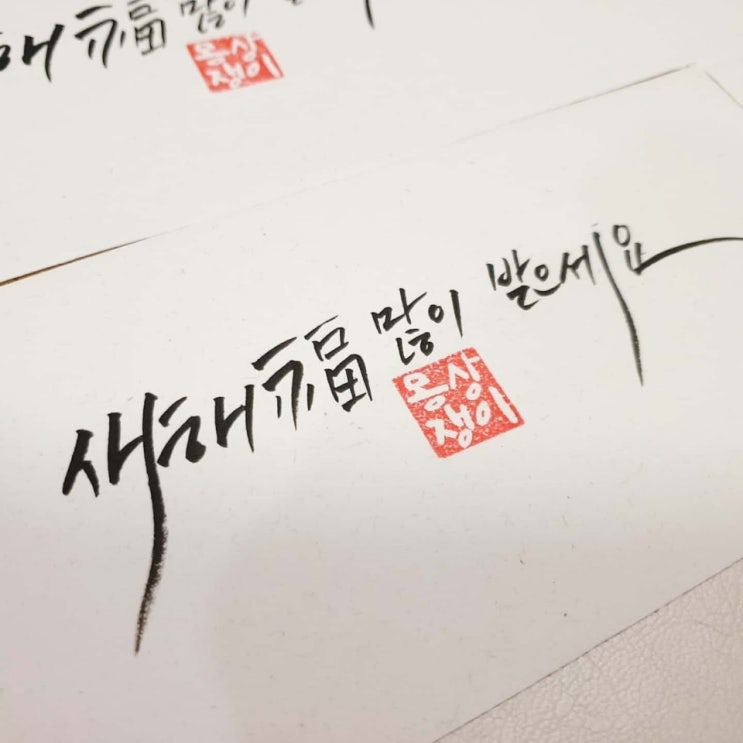 해 福 많이
몽상
쟁이
새해 福 많이 받으세요
몽상
쟁이